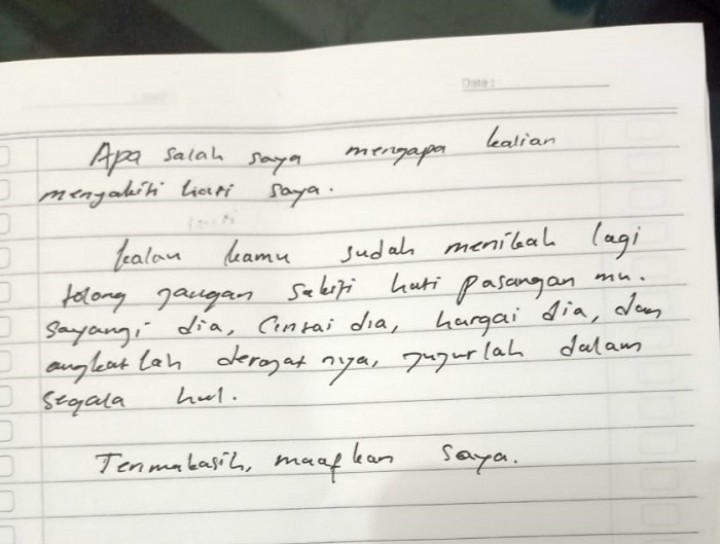 Date:
Apa salah saya mengapa kalian
menyakiti hati saya.
kalau kamu sudah menikah lagi
tolong jangan sakiti hati pasangan mu.
sayangi dia, Cintai dia, hargai dia, dan
angkatlah derajat nya, jujurlah dalam
segala hal.
Terimakasih, maafkan saya.